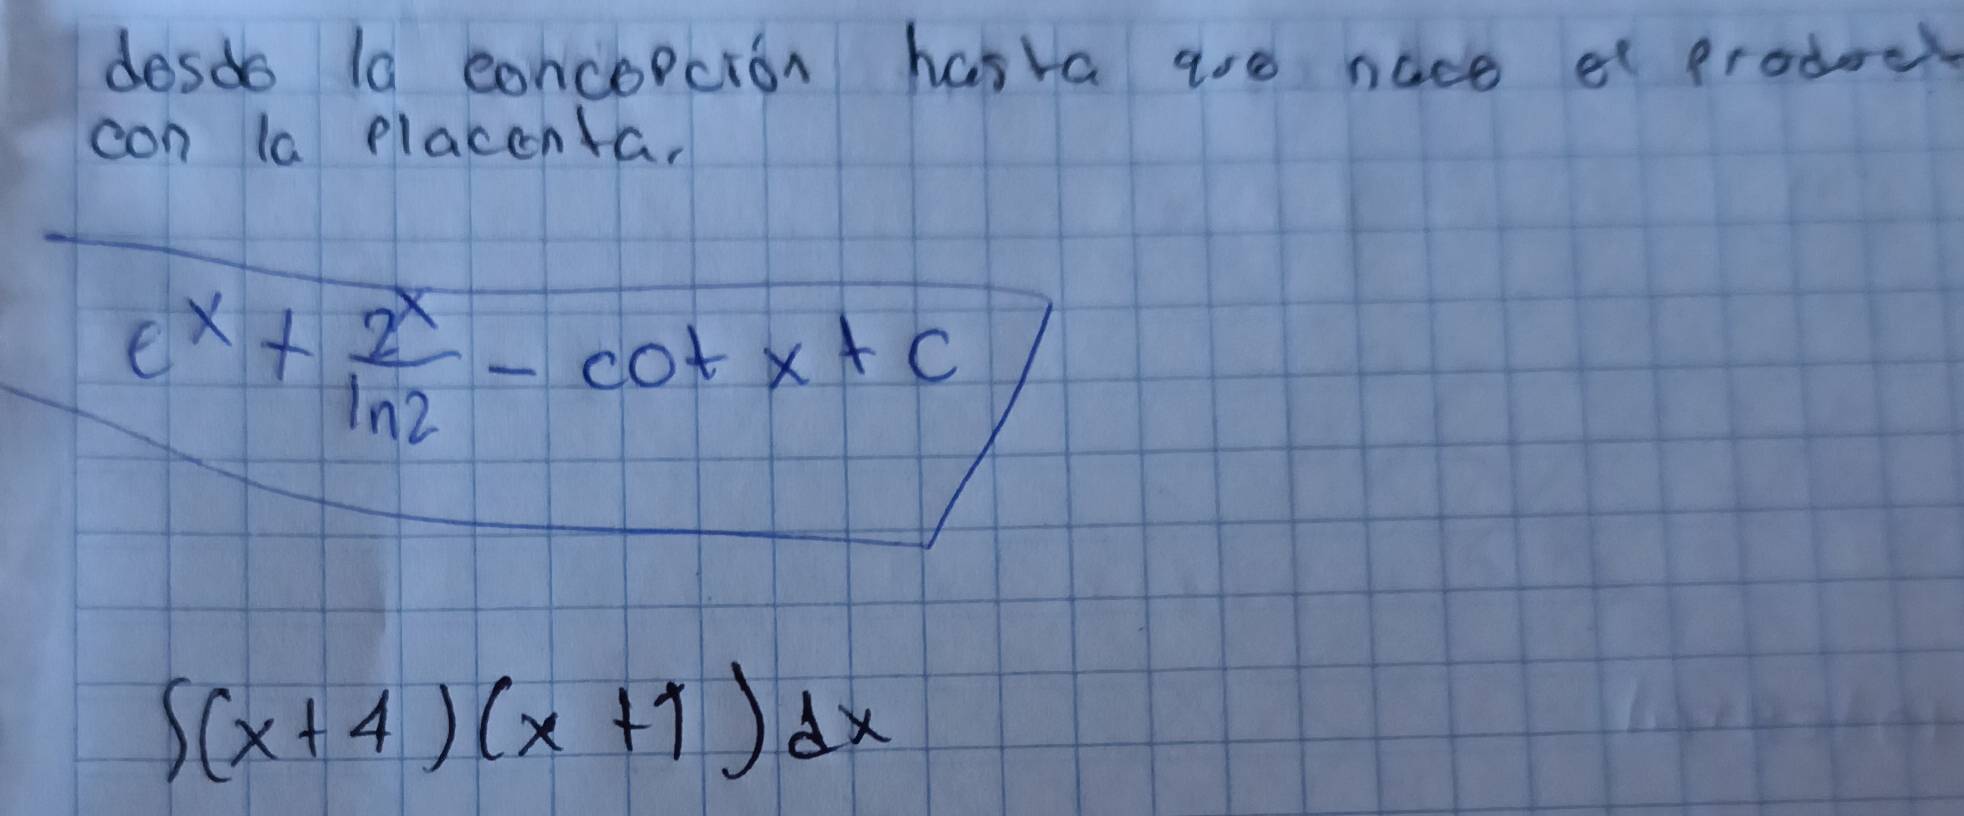 desde la concepción hasta que nace el product
con la placenta.
e^x + 2^x/ln2 - cot x + c
∫(x+4)(x+1)dx